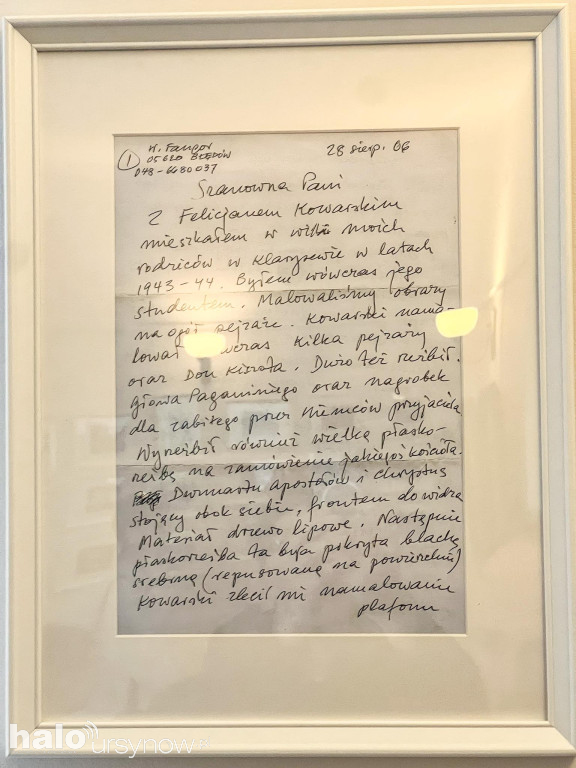 1
W. Fangor
05620 BŁĘDÓW
048-6680037
28 sierp. 06
Szanowna Pani
Z Felicjanem Kowarskim
mieszkałem w willi moich
rodziców w Klarysewie w latach
1943-44. Byłem wówczas jego
studentem. Malowaliśmy obrazy
na ogół pejzaże. Kowarski nama-
lował wówczas kilka pejzaży
oraz Don Kiszota. Dużo też rzeźbił.
Głowa Paganiniego oraz nagrobek
dla zabitego przez Niemców przyjaciela
Wyrzeźbił również wielką płasko-
rzeźbę na zamówienie jakiegoś kościoła.
Dwunastu apostołów i Chrystus
stojący obok siebie, frontem do widza
Materiał drzewo lipowe. Następnie
płaskorzeźba ta była pokryta blachą
srebrną (repusowaną na powierzchni)
Kowarski zlecił mi namalowanie
plafonu
halo
ursynow.pl